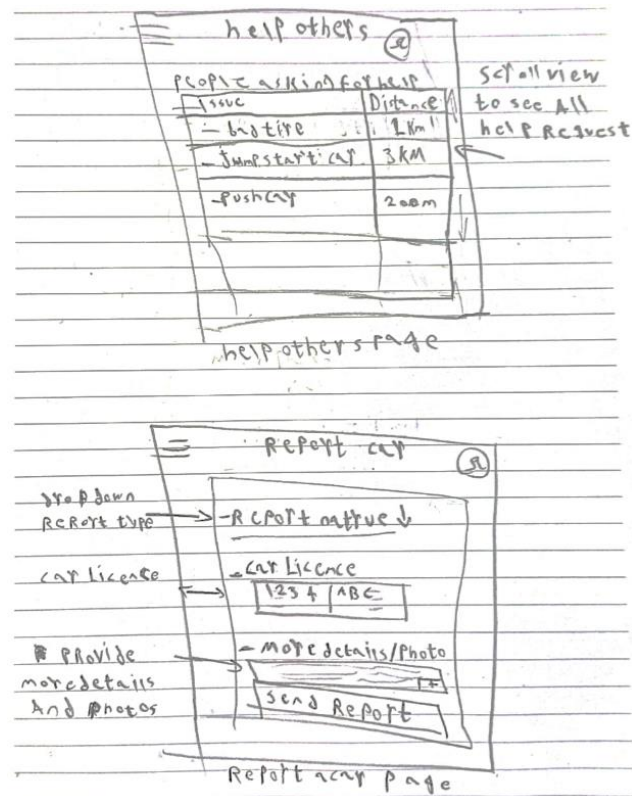 help others
People asking for help
Issue Distance
- bad tire 1 Km
- Jump start car 3 KM
- Push car 200m
scroll view
to see All
help Request
help others page
Report car
drop down
Report type
- Report natrue ↓
car Licence
- Car Licence
1234 ABC
Provide
more details
And photos
- More details/Photo
+
Send Report
Report a car page